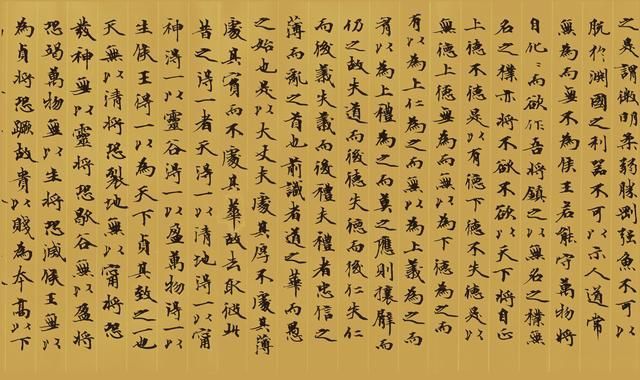 之是謂微明柔弱勝剛强魚不可以
脫於淵國之利器不可以示人道常
無為而無不為侯王若能守萬物將
自化々而欲作吾將鎮之以無名之樸無
名之樸亦將不欲不欲以天下將自正
上德不德是以有德下德不失德是以
無德上德無為而無以為下德為之而
有以為上仁為之而無以為上義為之而
有以為上禮為之而莫之應則攘臂而
仍之故失道而後德失德而後仁失仁
而後義失義而後禮夫禮者忠信之
薄而亂之首也前識者道之華而愚
之始也是以大丈夫處其厚不處其薄
處其實而不處其華故去取彼此
昔之得一者天得一以清地得一以甯
神得一以靈谷得一以盈萬物得一以
生侯王得一以為天下貞其致之一也
天無以清將恐裂地無以甯將恐
發神無以靈將恐歇谷無以盈將
恐竭萬物無以生將恐滅侯王無以
為貞將恐蹶故貴以賤為本高以下